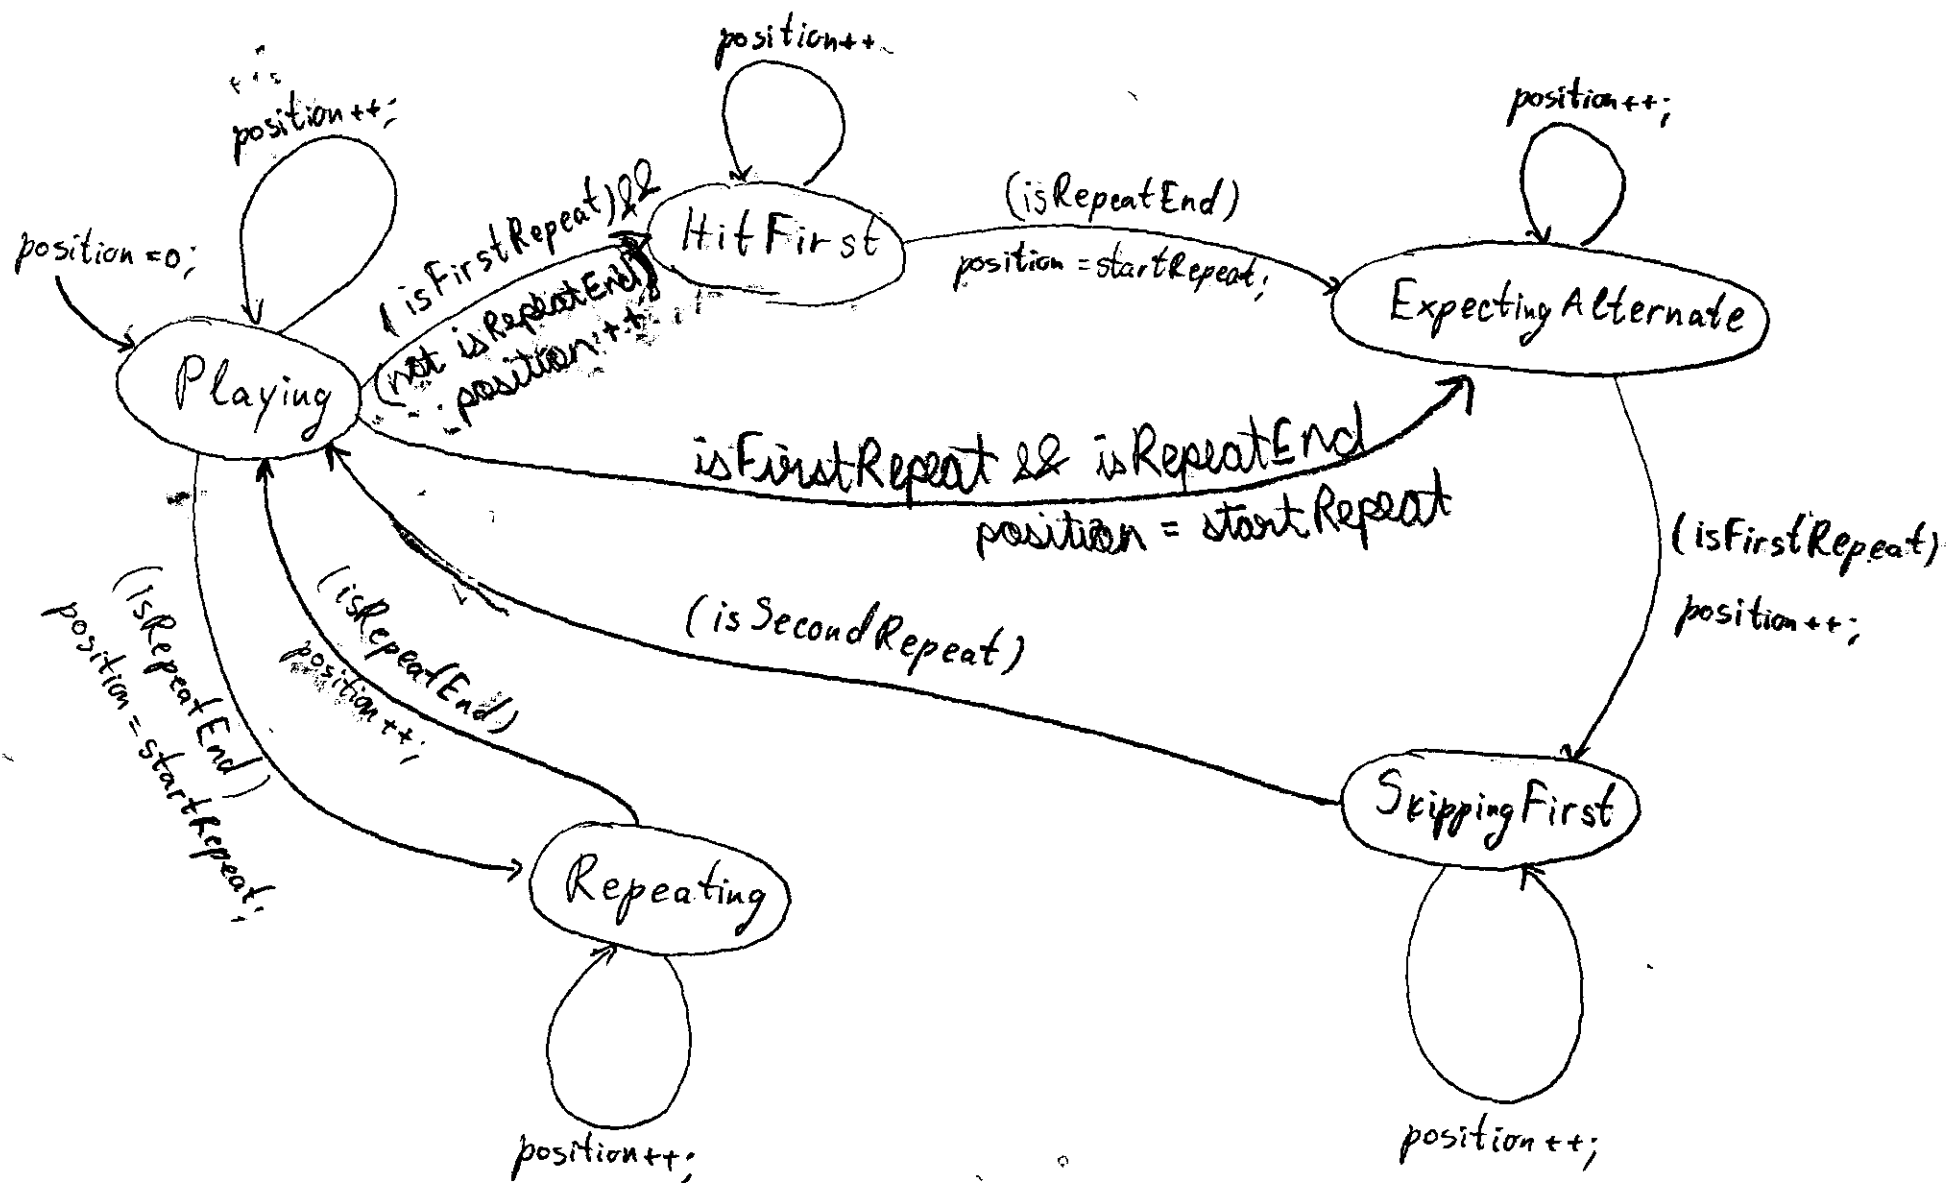 position++
position++;
position++;
position=0;
(isFirstRepeat)&&
(not isRepeatEnd)
position++
HitFirst
(isRepeatEnd)
position=startRepeat;
ExpectingAlternate
Playing
isFirstRepeat && isRepeatEnd
position = startRepeat
(isFirstRepeat)
position++;
(isSecondRepeat)
(isRepeatEnd)
position++;
(isRepeatEnd)
position=startRepeat;
SkippingFirst
Repeating
position++;
position++;